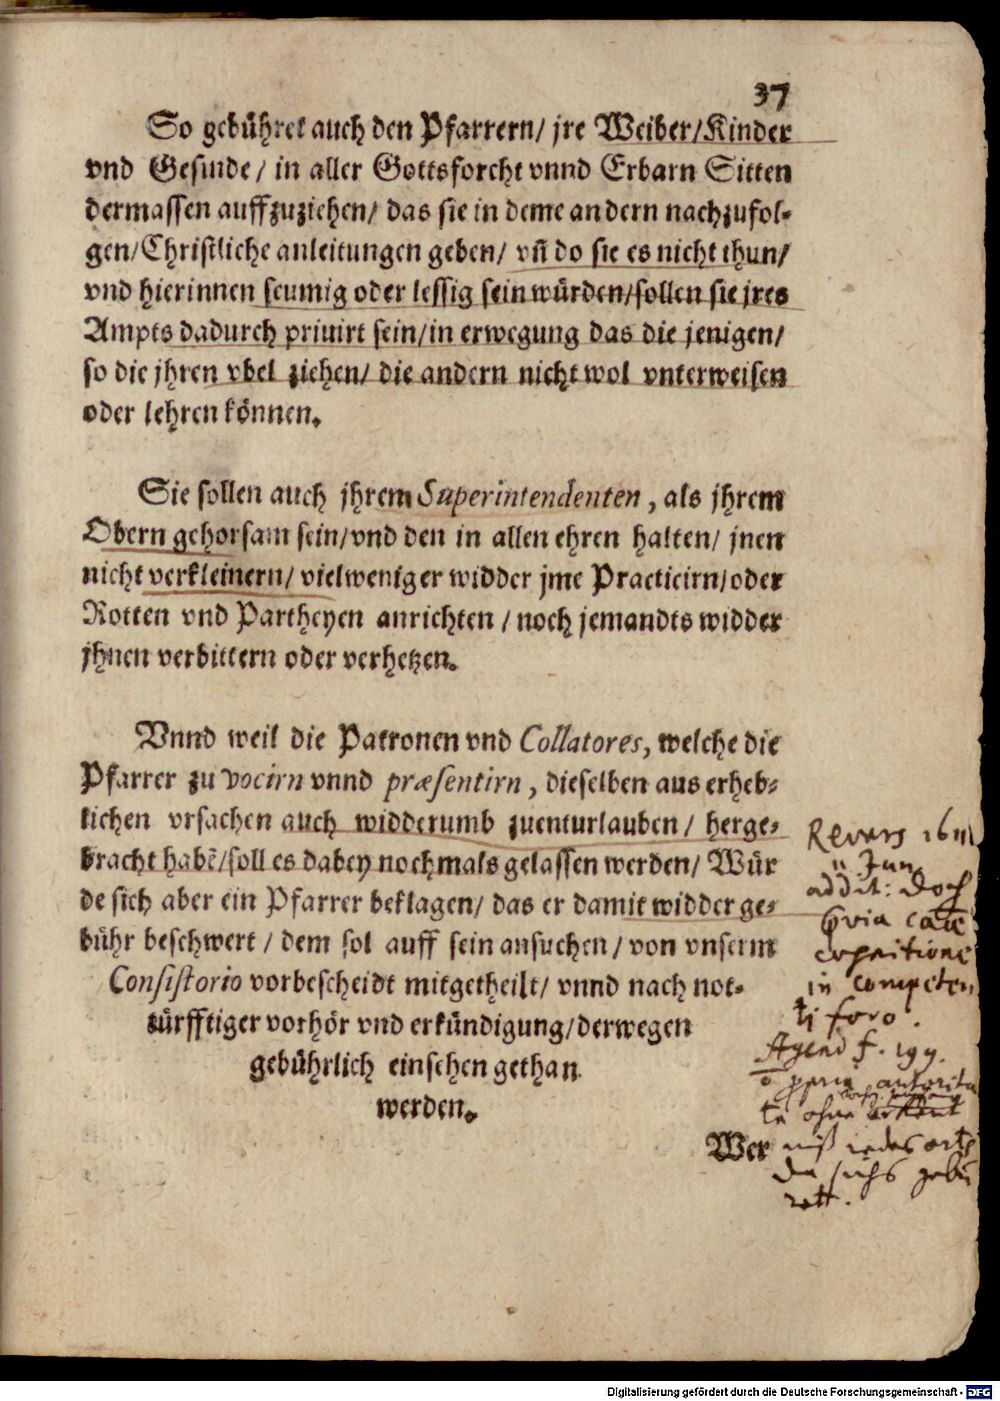 37
So gebühret auch den Pfarrern/ jre Weiber/Kinder
vnd Gesinde/ in aller Gottsforcht vnnd Erbarn Sitten
dermassen auffzuziehen/ das sie in deme andern nachzufol-
gen/Christliche anleitungen geben/ vñ do sie es nicht thun/
vnd hierinnen seumig oder lessig sein würden/sollen sie jres
Ampts dadurch priuirt sein/in erwegung das die jenigen/
so die jhren vbel ziehen/ die andern nicht wol vnterweisen
oder lehren können.
Sie sollen auch jhrem Superintendenten, als jhrem
Obern gehorsam sein/vnd den in allen ehren halten/ jnen
nicht verkleinern/ vielweniger widder jme Practicirn/oder
Rotten vnd Partheyen anrichten / noch jemandts widder
jhnen verbittern oder verhetzen.
Vnnd weil die Patronen vnd Collatores, welche die
Pfarrer zu vocirn vnnd præsentirn, dieselben aus erheb-
lichen vrsachen auch widderumb zuenturlauben/ herge-
bracht habẽ/soll es dabey nochmals gelassen werden/ Wür
de sich aber ein Pfarrer beklagen/ das er damit widder ge-
bühr beschwert / dem sol auff sein ansuchen/ von vnserm
Consistorio vorbescheidt mitgetheilt/ vnnd nach not-
türfftiger vorhör vnd erkündigung/derwegen
gebührlich einsehen gethan
werden.
Revers 1611
11 Jun
addit: Doch
in competen
ti foro.
Agend f. 199.
propria autorita
te ohne
Wer
niß jedes orts
da sichs gebü
rett.
Digitalisierung gefördert durch die Deutsche Forschungsgemeinschaft - DFG